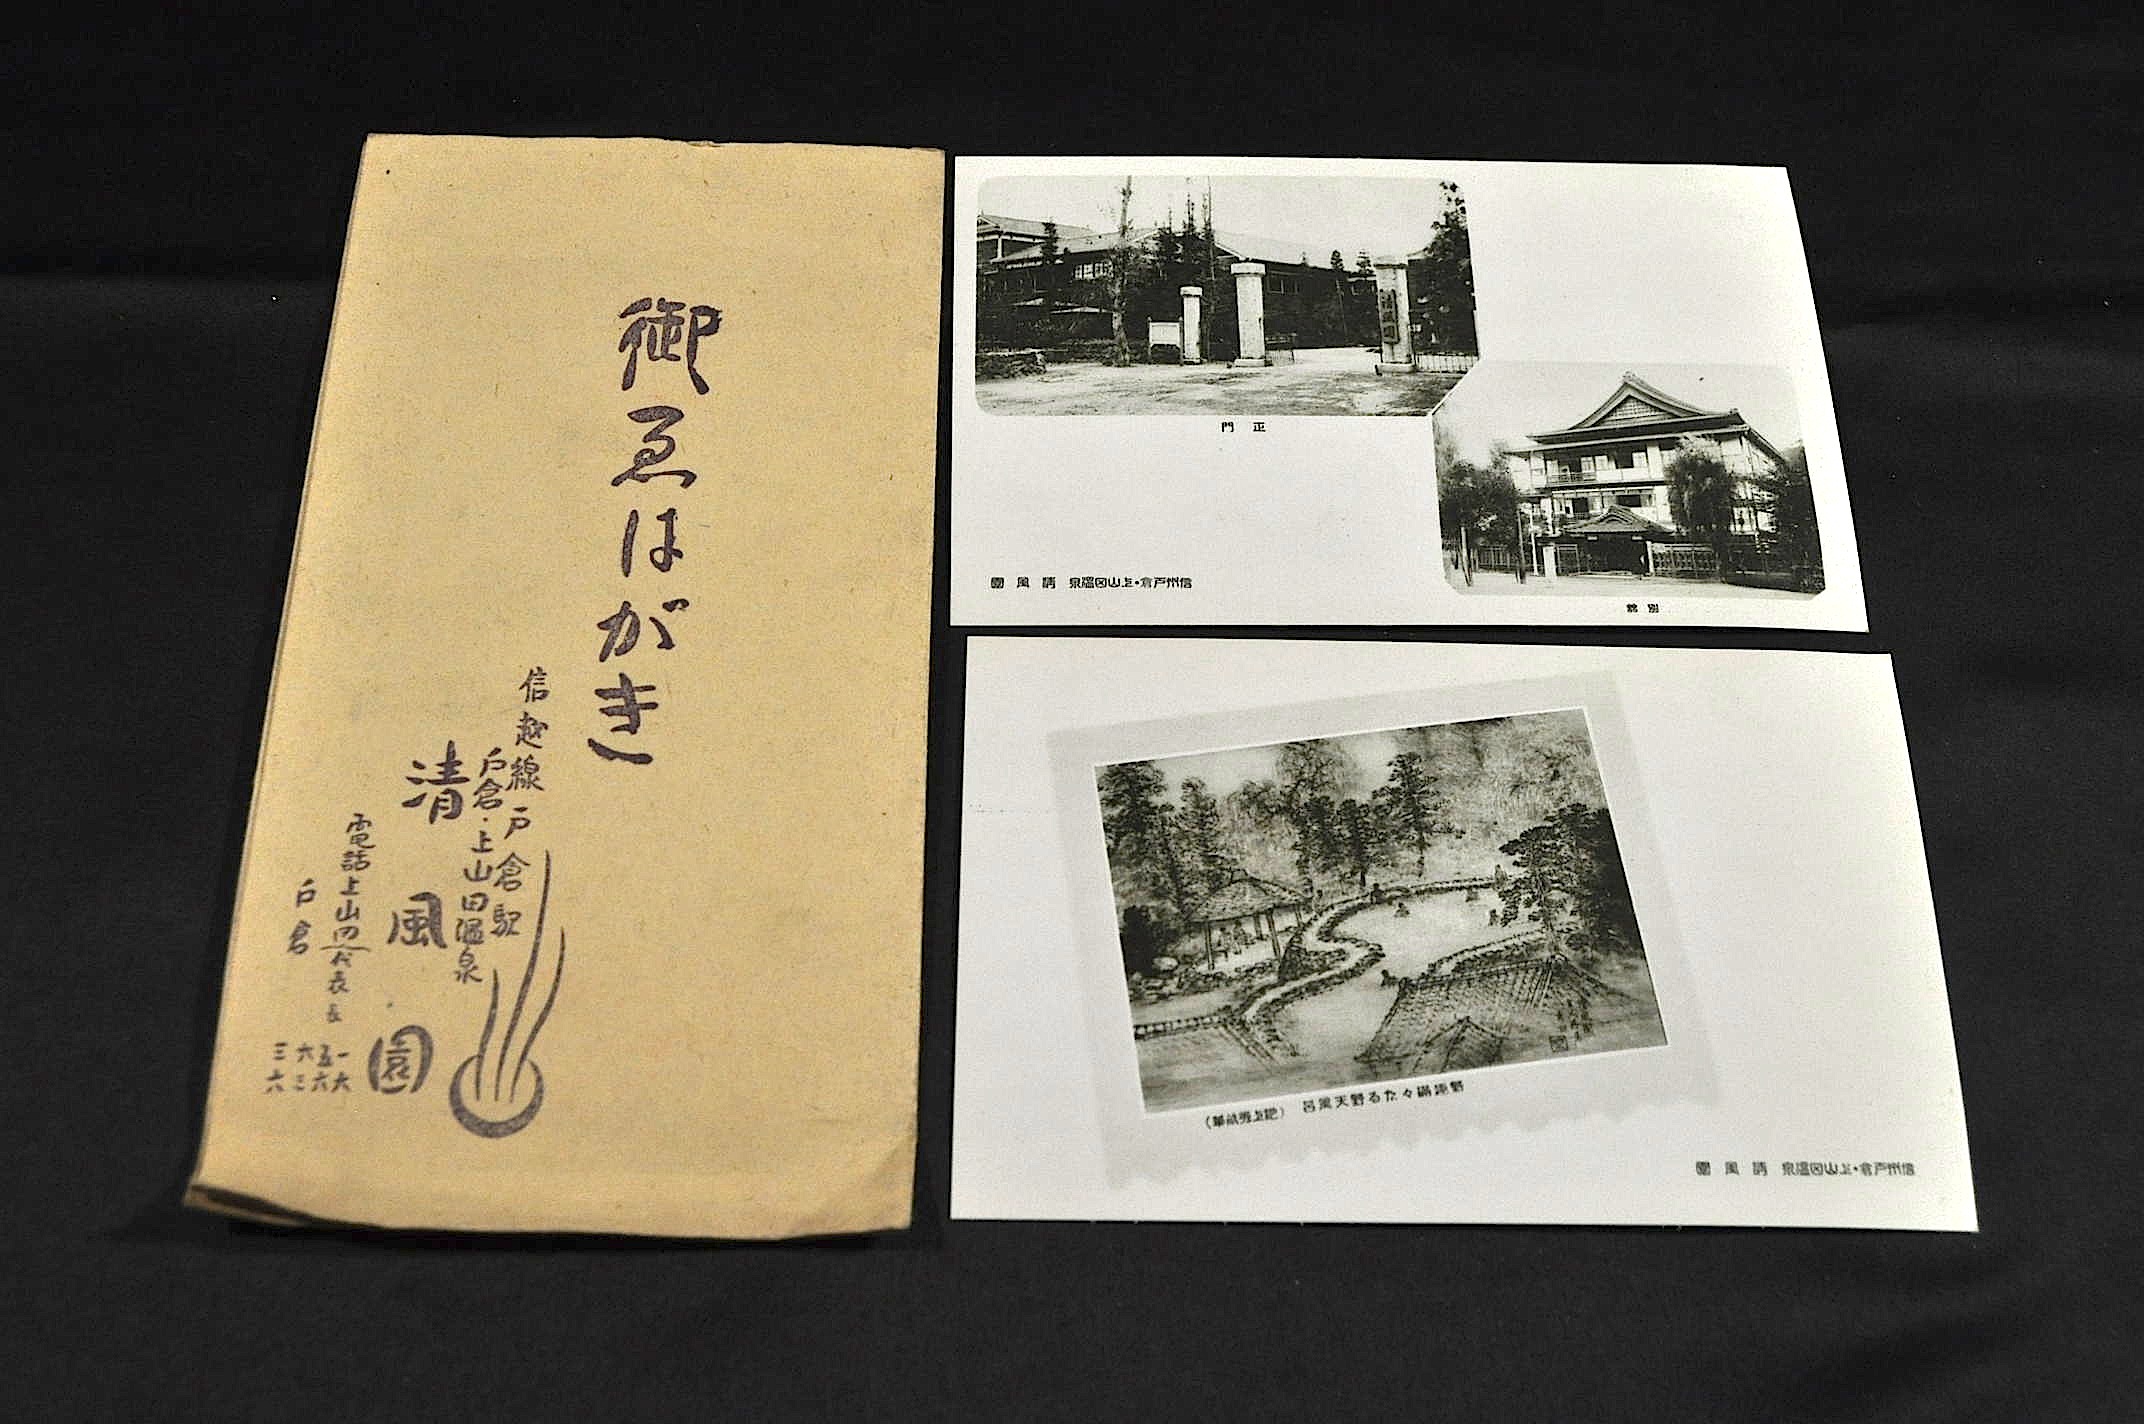 御ゑはがき
信越線戸倉駅
戸倉・上山田温泉
清風園
電話上山田代表長
戸倉
一六
五六
六三
三六
門正
館別
園風清 泉温田山上・倉戸州信
野趣満々たる野天風呂
園風清 泉温田山上・倉戸州信